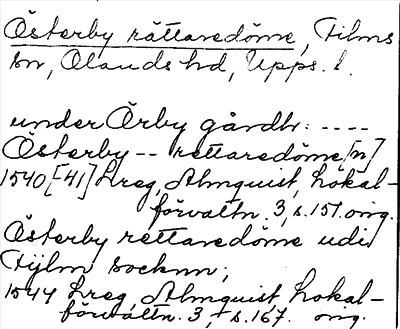 Österby rättaredöme, Films
sn, Olands hd, Upps. l.
under Örby gårdh: ----
Österby -- rettaredöme[n]
1540[41] Lreg, Almquist, Lokal-
förvaltn. 3, s. 151. orig.
Österby rettaredöme udi
Fijlm socknn;
1544 Lreg, Almquist, Lokal-
förvaltn. 3, s. 167. orig.